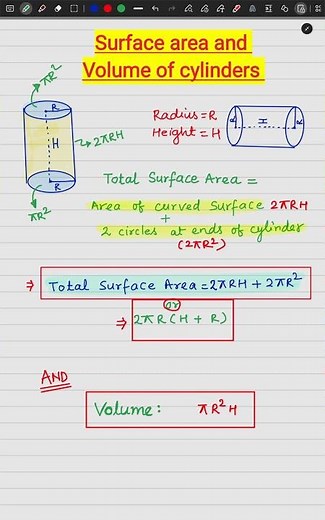 Surface area and
Volume of cylinders
πR²
R
H
2πRH
R
πR²
Radius = R
Height = H
R
H
R
Total Surface Area =
Area of curved Surface 2πRH
+
2 circles at ends of cylinder
(2πR²)
⇒ Total Surface Area = 2πRH + 2πR²
or
⇒ 2πR(H + R)
AND
Volume: πR²H